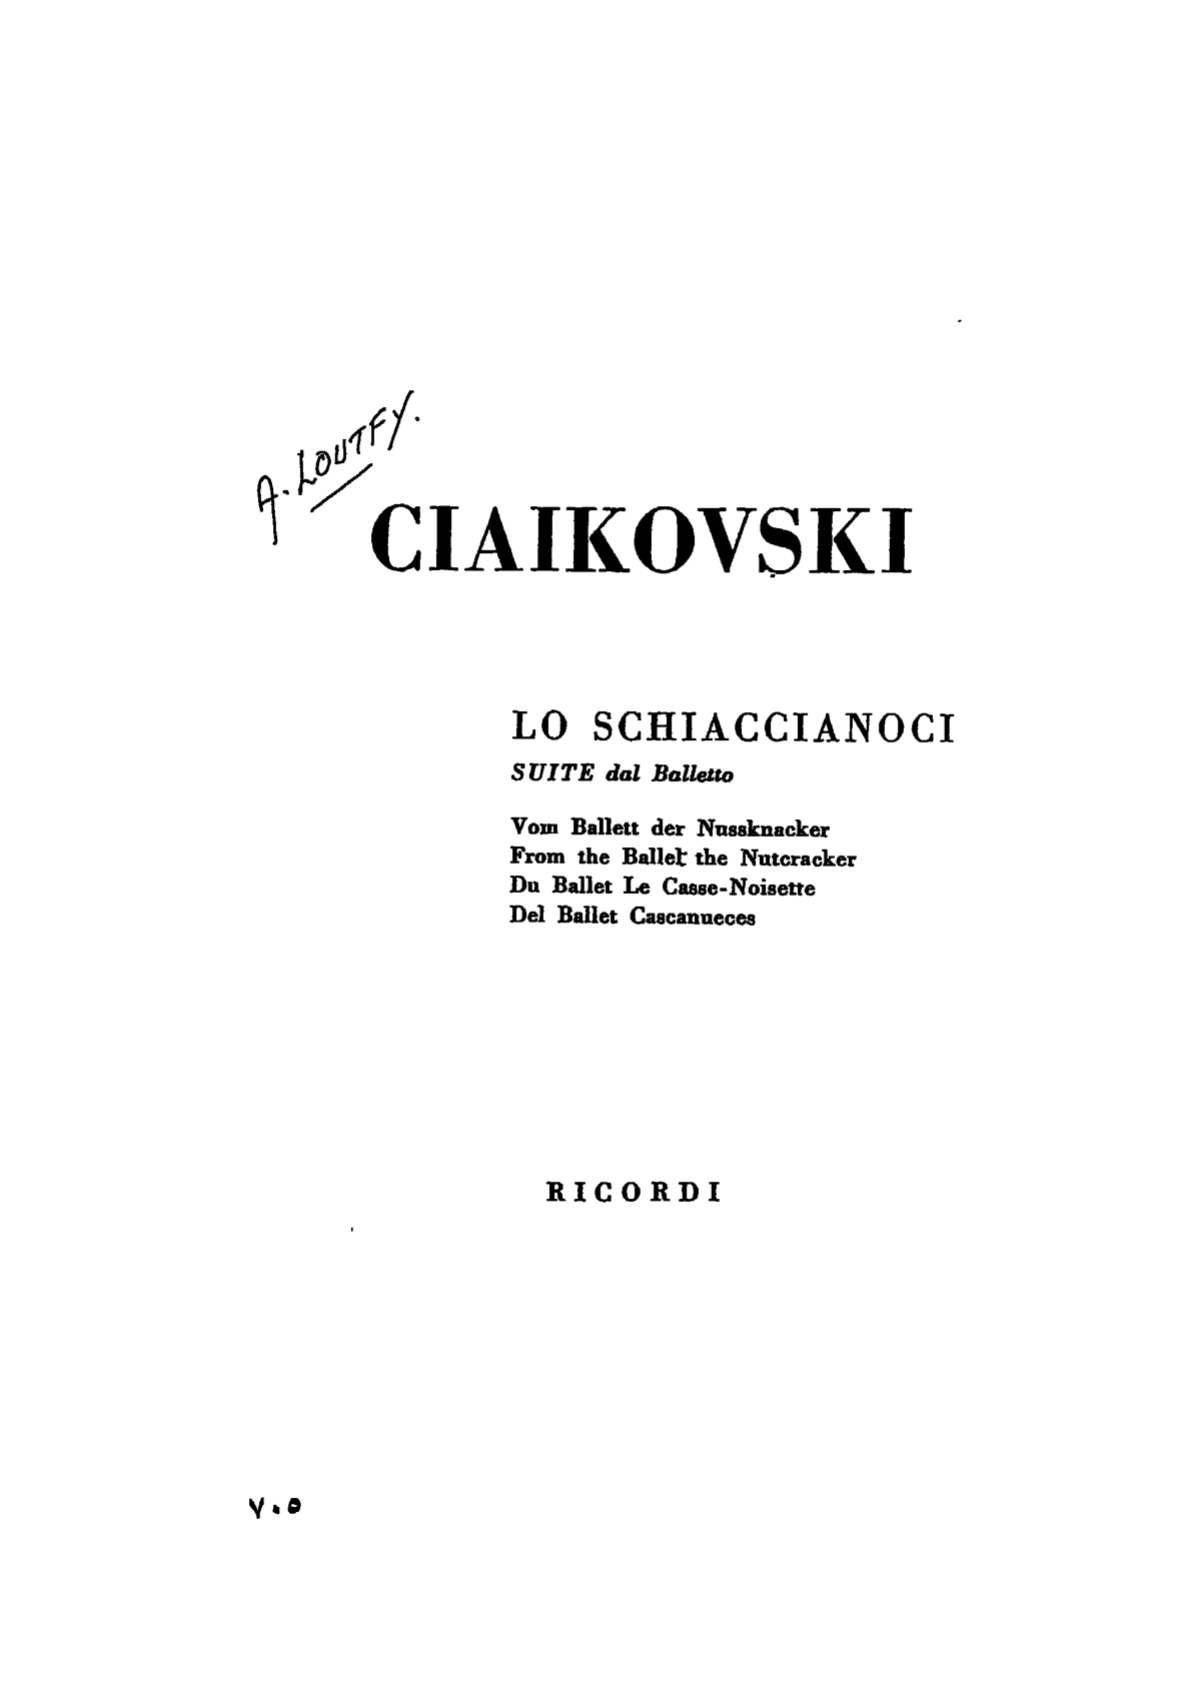 A. LOUTFY.
CIAIKOVSKI
LO SCHIACCIANOCI
SUITE dal Balletto
Vom Ballett der Nussknacker
From the Ballet the Nutcracker
Du Ballet Le Casse-Noisette
Del Ballet Cascanueces
RICORDI
٧٠٥